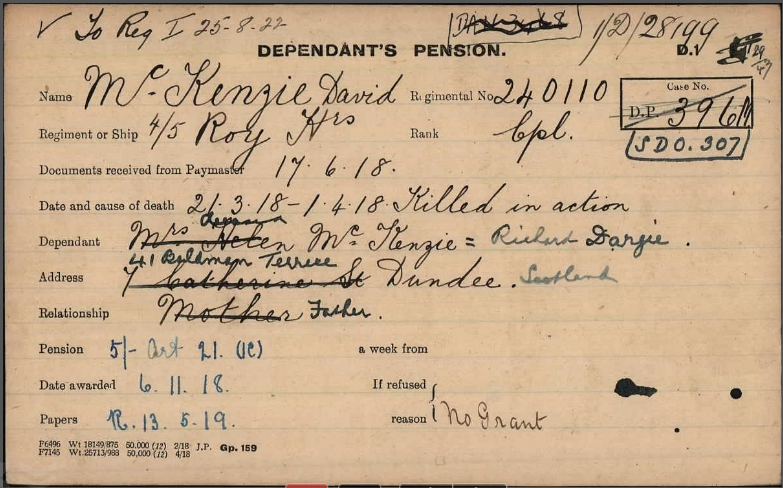 ✓ To Reg I 25-8-22
1/D/28199
DEPENDANT'S PENSION. D.1
Name McKenzie David Regimental No. 240110
Case No.
D.P. 3961M
Regiment or Ship 4/5 Roy Hrs Rank Cpl.
SDO. 307
Documents received from Paymaster 17.6.18.
Date and cause of death 21.3.18-1.4.18 Killed in action
deceased
Dependant Mrs Helen McKenzie = Richard Dargie.
41 Terrace
Address 7 Catherine St Dundee. Scotland
Relationship Mother Father.
Pension 5/- Art 21. (1C) a week from
Date awarded 6.11.18. If refused
Papers R.13.5.19. reason No Grant
P6496 Wt 18149/875 50,000 (12) 2/18 J.P. Gp. 159
P7145 Wt.25713/983 50,000 (12) 4/18